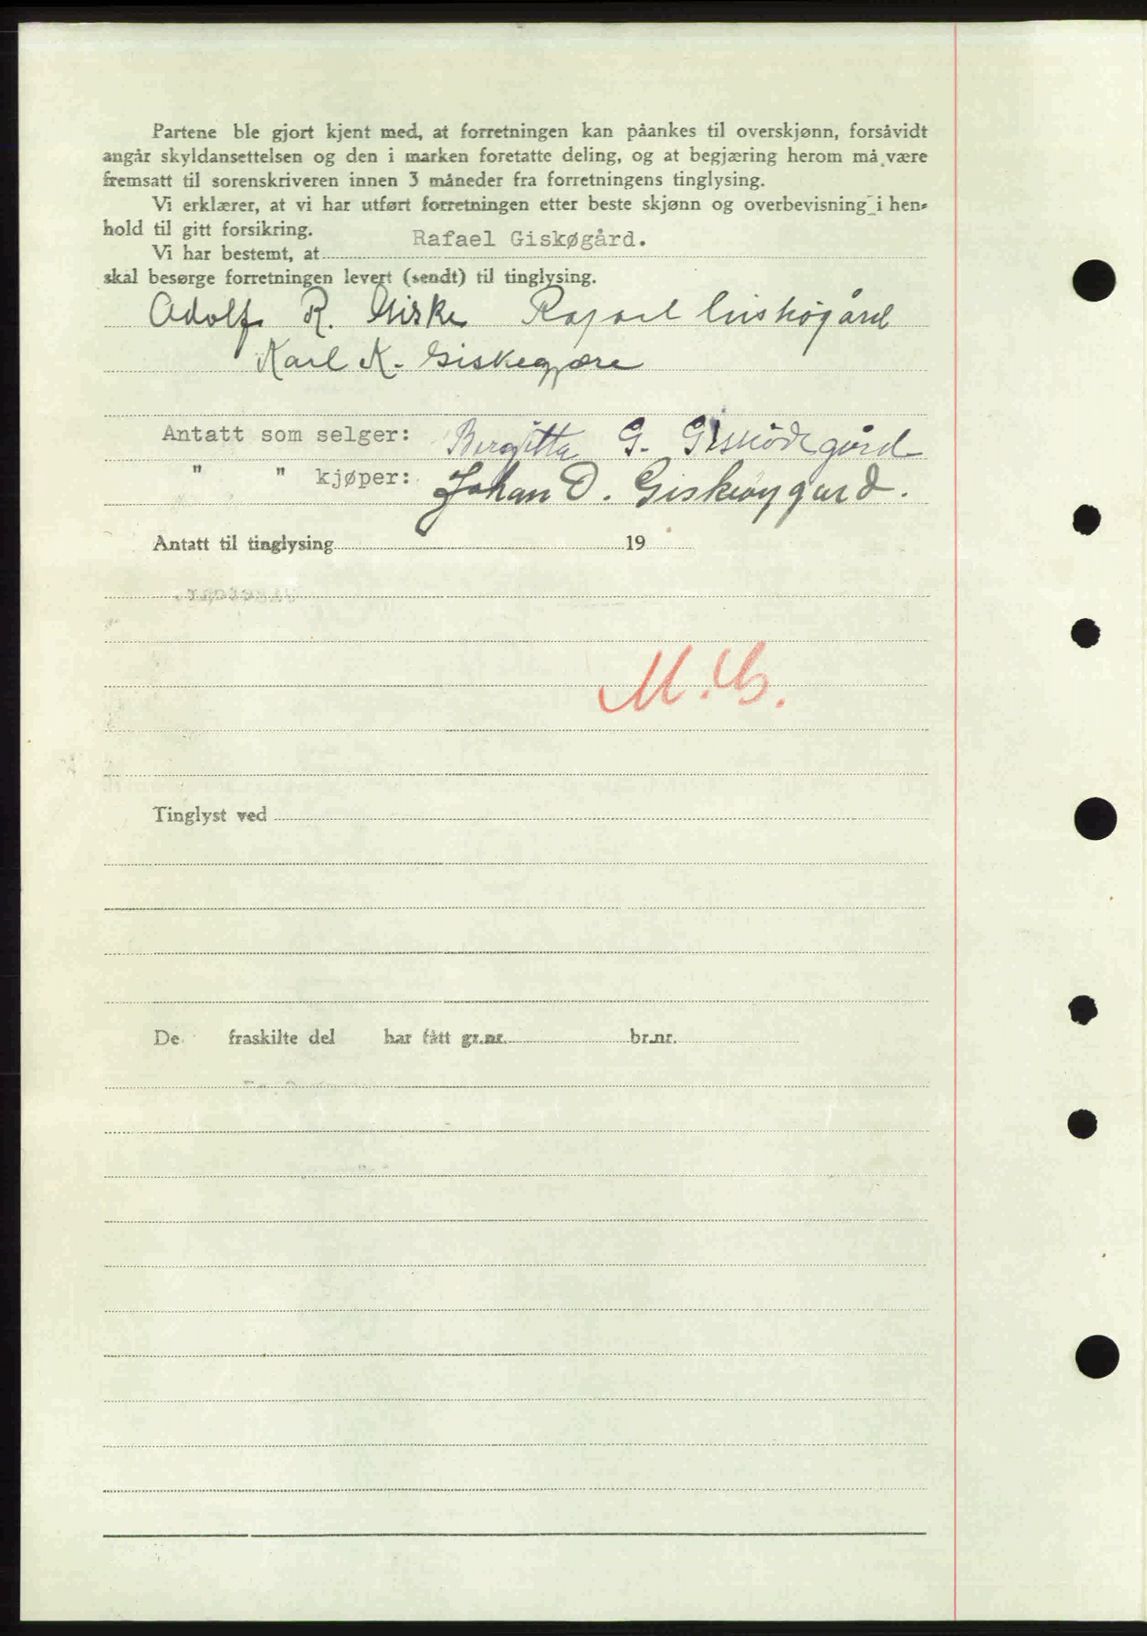 Partene ble gjort kjent med, at forretningen kan påankes til overskjønn, forsåvidt
angår skyldansettelsen og den i marken foretatte deling, og at begjæring herom må være
fremsatt til sorenskriveren innen 3 måneder fra forretningens tinglysing.
Vi erklærer, at vi har utført forretningen etter beste skjønn og overbevisning i hen-
hold til gitt forsikring.
Vi har bestemt, at Rafael Giskøgård.
skal besørge forretningen levert (sendt) til tinglysing.
Adolf R. Giske Rafael Giskøgård
Karl K. Giskegjære
Antatt som selger: Bergitta G. Giskødegård
" " kjøper: Johan D. Giskøygard.
Antatt til tinglysing 19
M.G.
Tinglyst ved
De fraskilte del har fått gr.nr. br.nr.